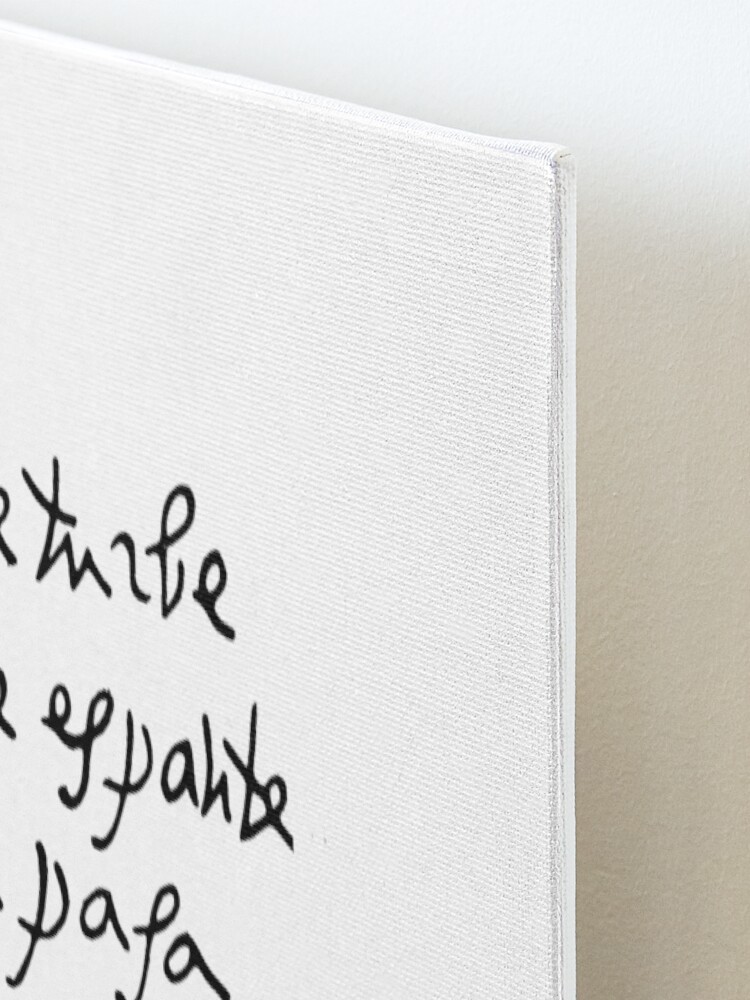 e turbe
e espante
pasa